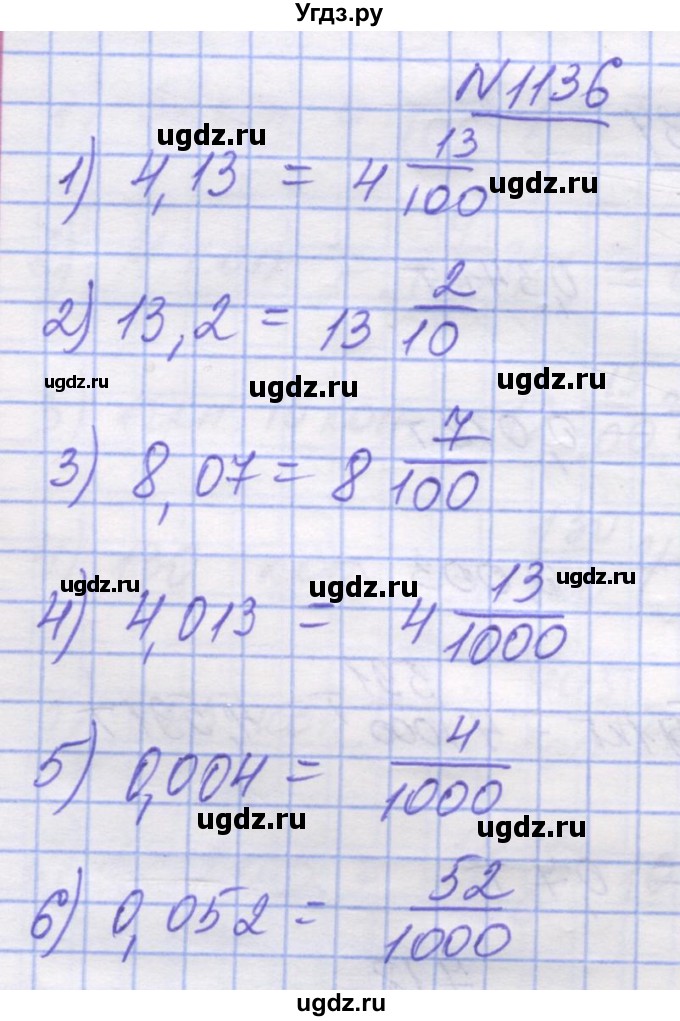 Угдз.ру
N1136
ugdz.ru
1) 4,13 = 4 13/100
ugdz.ru
2) 13,2 = 13 2/10
ugdz.ru
ugdz.ru
ugdz.ru
3) 8,07 = 8 7/100
ugdz.ru
ugdz.ru
ugdz.ru
4) 4,013 = 4 13/1000
5) 0,004 = 4/1000
ugdz.ru
ugdz.ru
6) 0,052 = 52/1000
ugdz.ru